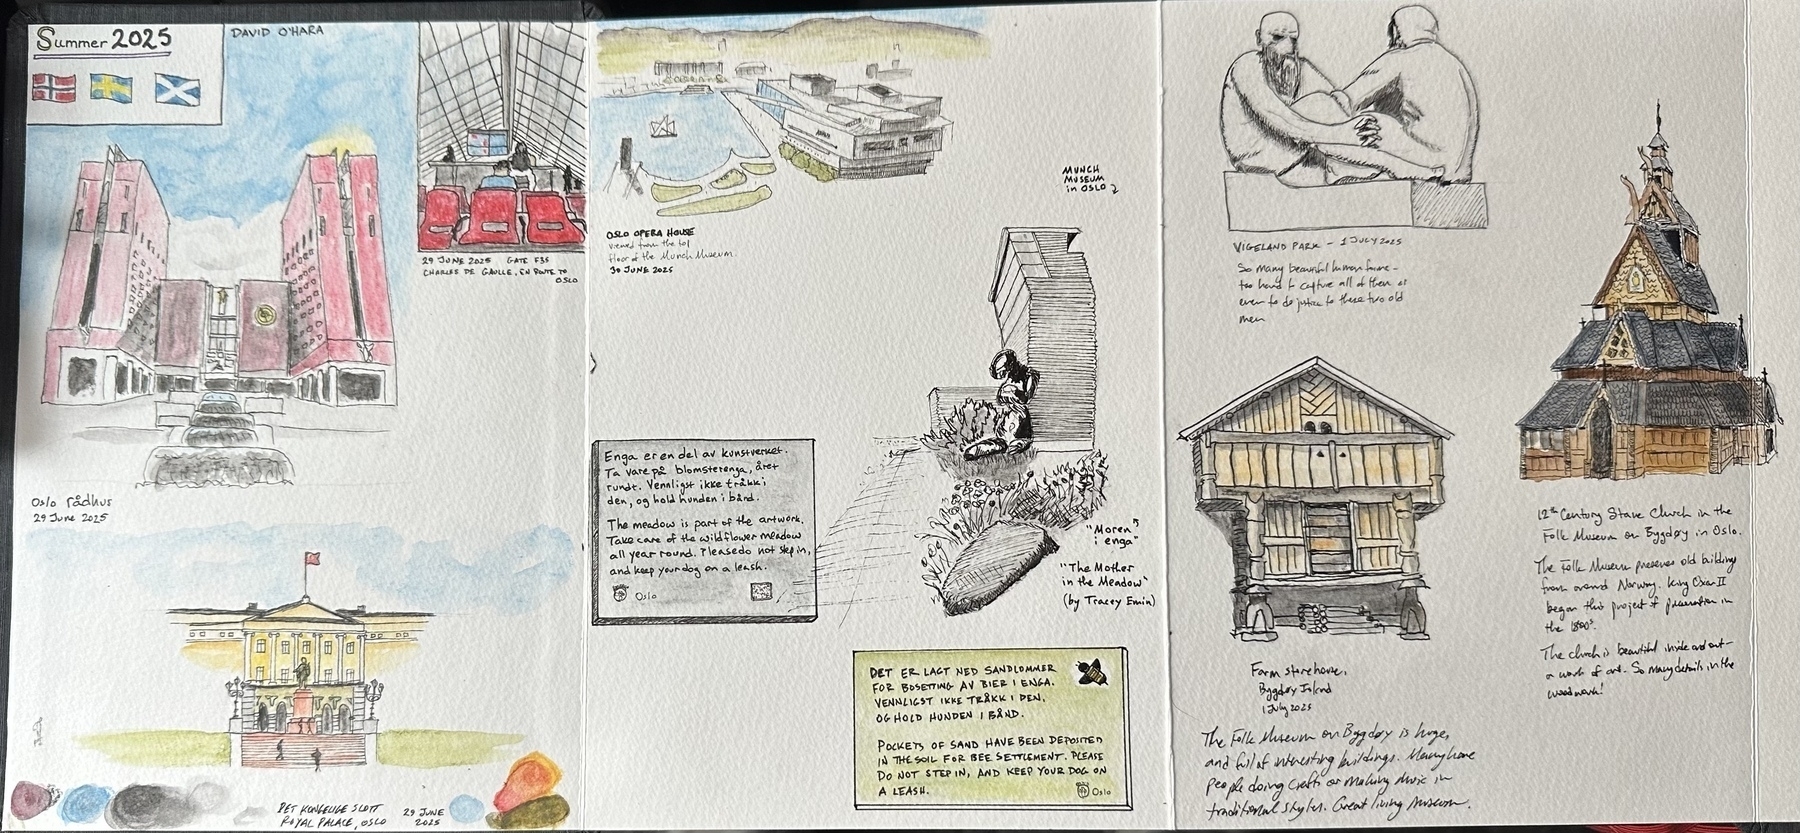 Summer 2025
DAVID O'HARA
29 JUNE 2025 GATE F35
CHARLES DE GAULLE, EN ROUTE TO
OSLO
Oslo rådhus
29 June 2025
DET KONGELIGE SLOTT
ROYAL PALACE, OSLO
29 JUNE
2025
OSLO OPERA HOUSE
viewed from the top
floor of the Munch Museum.
30 JUNE 2025
MUNCH
MUSEUM
in OSLO
Enga er en del av kunstverket.
Ta vare på blomsterenga, året
rundt. Vennligst ikke tråkk i
den, og hold hunden i bånd.
The meadow is part of the artwork.
Take care of the wildflower meadow
all year round. Please do not step in,
and keep your dog on a leash.
Oslo
"Moren
i enga"
"The Mother
in the Meadow"
(by Tracey Emin)
DET ER LAGT NED SANDLOMMER
FOR BOSETTING AV BIER I ENGA.
VENNLIGST IKKE TRÅKK I DEN,
OG HOLD HUNDEN I BÅND.
POCKETS OF SAND HAVE BEEN DEPOSITED
IN THE SOIL FOR BEE SETTLEMENT. PLEASE
DO NOT STEP IN, AND KEEP YOUR DOG ON
A LEASH.
Oslo
VIGELAND PARK - 1 JULY 2025
So many beautiful human forms -
too hard to capture all of them or
even to do justice to these two old
men
Farm storehouse,
Bygdøy Island
1 July 2025
The Folk Museum on Bygdøy is huge,
and full of interesting buildings. Many have
people doing crafts or making music in
traditional styles. Great living museum.
12th Century Stave Church in the
Folk Museum on Bygdøy in Oslo.
The Folk Museum preserves old buildings
from around Norway. King Oscar II
began this project of preservation in
the 1800s.
The church is beautiful inside and out -
a work of art. So many details in the
woodwork!